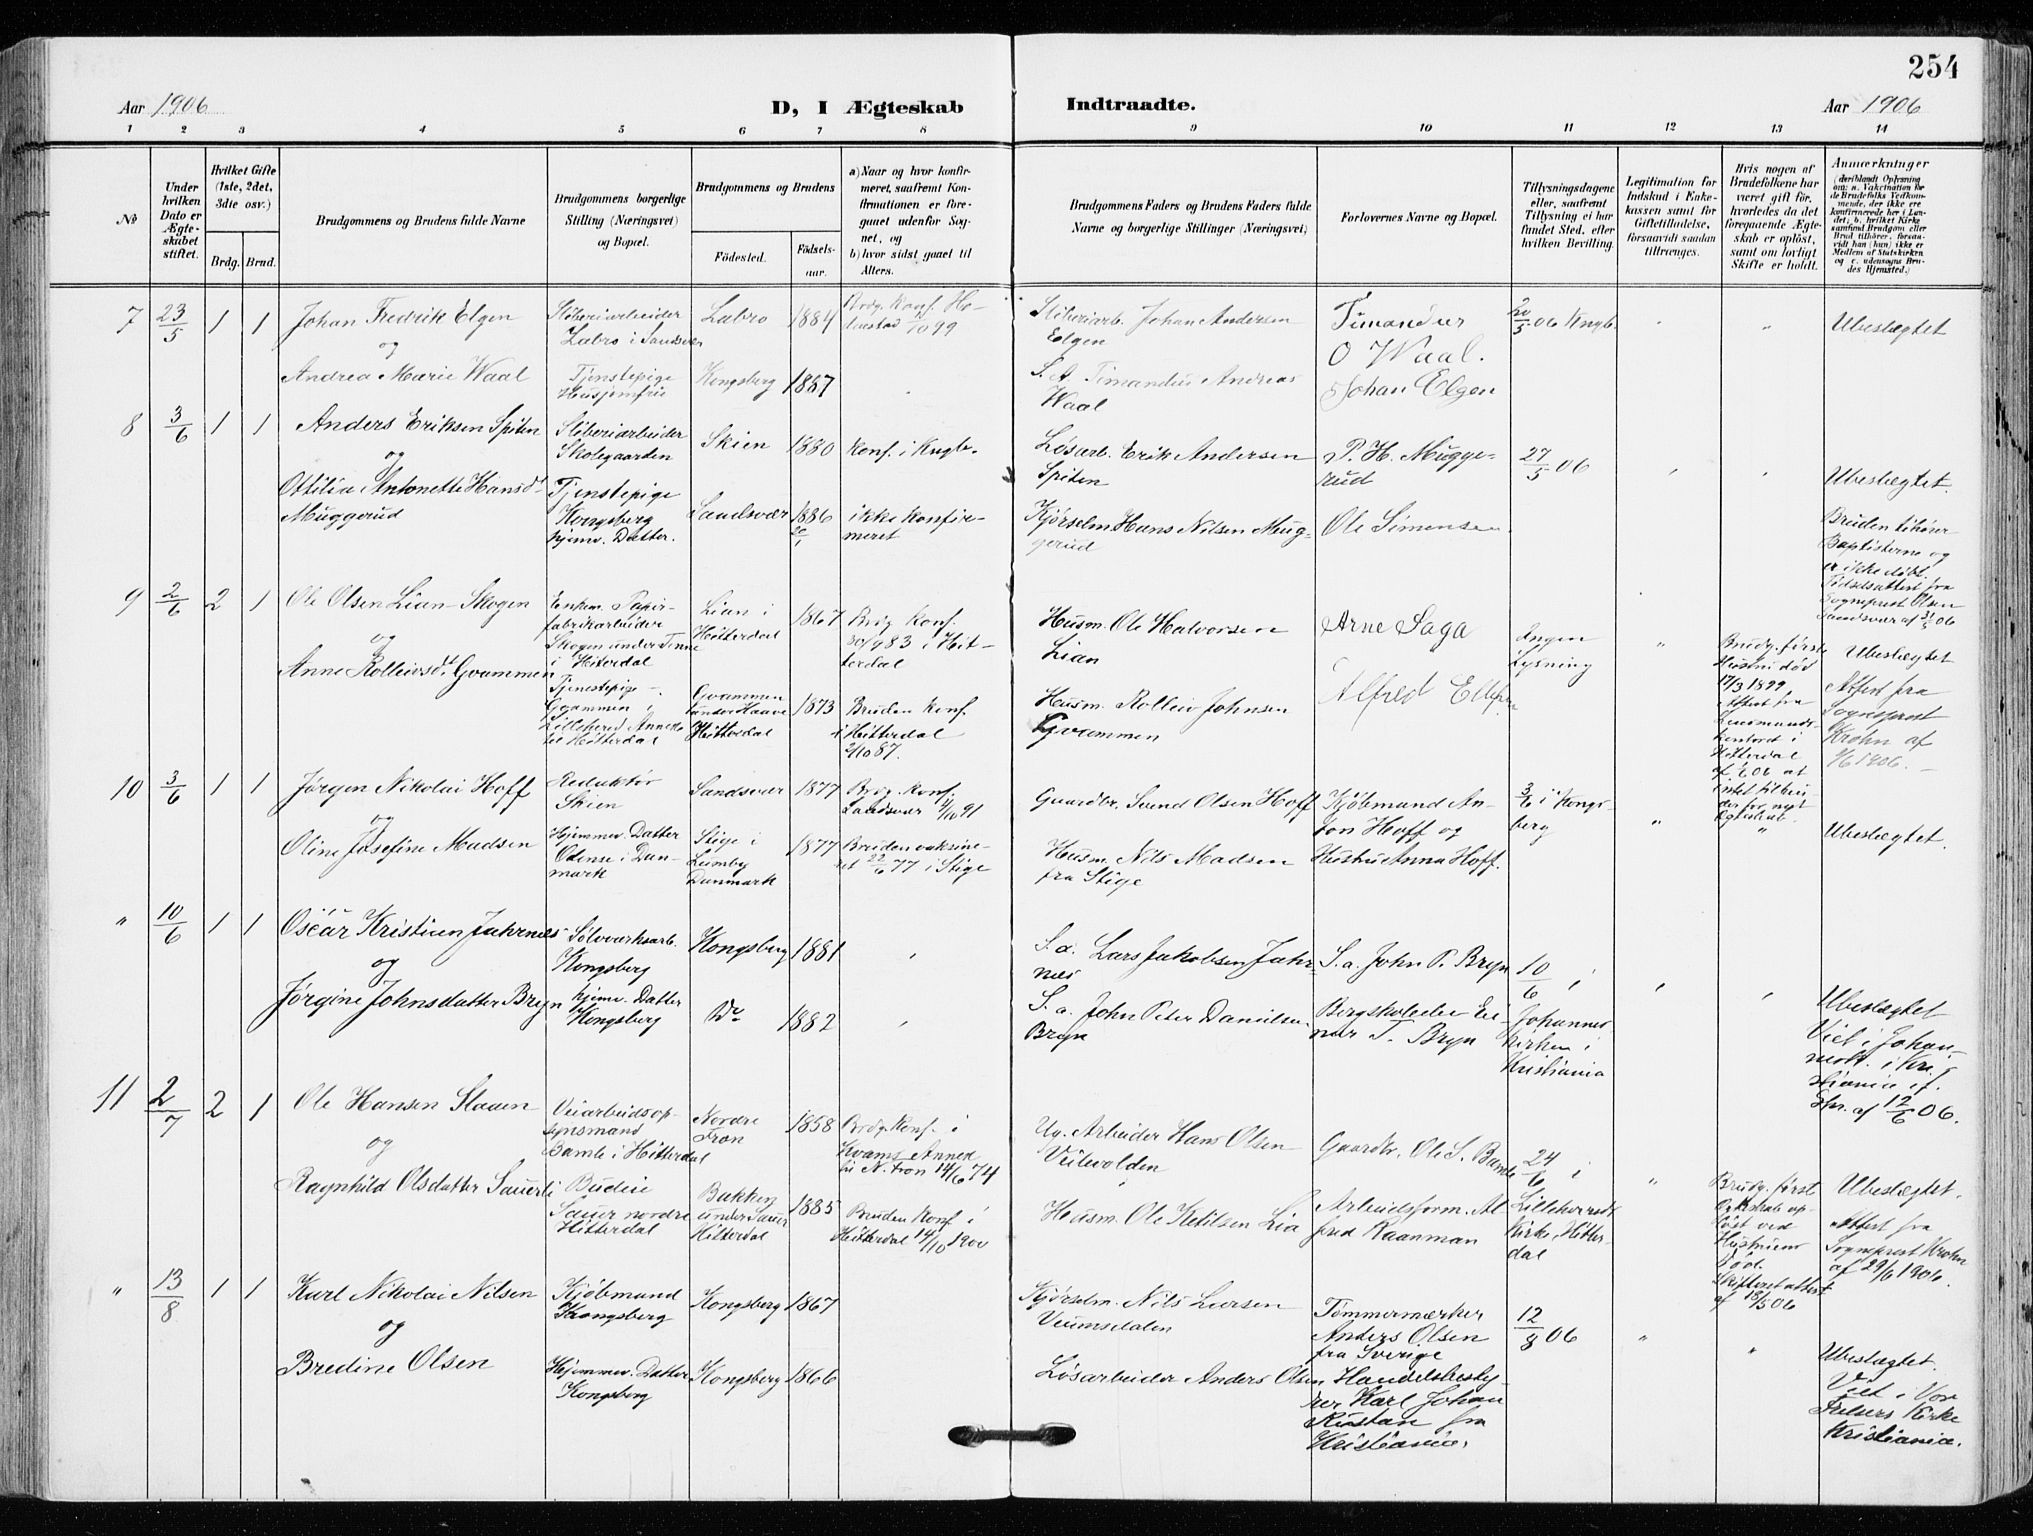 254
Aar 1906
D, I Ægteskab
Indtraadte.
Aar 1906
1 2 3 4 5 6 7 8 9 10 11 12 13 14
No
Under
hvilken
Dato er
Ægte-
skabet
stiftet.
Hvilket Gifte
(1ste, 2det,
3die osv.)
Brdg. Brud.
Brudgommens og Brudens fulde Navne
Brudgommens borgerlige
Stilling (Næringsvei)
og Bopæl.
Brudgommens og Brudens
Födested.
Födsels-
aar.
a) Naar og hvor konfir-
meret, saafremt Kon-
firmationen er fore-
gaaet udenfor Sog-
net, og
b) hvor sidst gaaet til
Alters.
Brudgommens Faders og Brudens Faders fulde
Navne og borgerlige Stillinger (Næringsvei)
Forlovernes Navne og Bopæl.
Tillysningsdagene
eller, saafremt
Tillysning ei har
fundet Sted, efter
hvilken Bevilling.
Legitimation for
Indskud i Enke-
kassen samt for
Giftetilladelse,
forsaavidt saadan
tiltrænges.
Hvis nogen af
Brudefolkene har
været gift för,
hvorledes da det
foregaaende Ægte-
skab er oplöst,
samt om lovligt
Skifte er holdt.
Anmærkninger
(deriblandt Oplysning
om: a. Vakcination for
de Brudefolks Vedkom-
mende, der ikke ere
konfirmerede her i Lan-
det; b. hvilket Kirke
samfund Brudgom eller
Brud tilhörer, forsaa-
vidt han (hun) ikke er
Medlem af Statskirken
og c. udensogns Bru-
des Hjemsted.)
7 23/5 1 1
Johan Fredrik Elgen
og
Andrea Marie Waal
Sliberiarbeider
Labro i Sandsvær
Tjenstepige
Labro 1884
Kongsberg 1887
Brdg. Konf. He-
Sliberiarb. Johan Andersen
Elgen
S. A. Timandus Andreas
Waal
Timandus
O Waal.
Johan Elgen
20/5 06 Kngb.
Ubeslægtet
8 3/6 1 1
Anders Eriksen Spiten
og
Ottilia Antonette Hansdt
Muggerud
Sliberiarbeider
Skolegaarden
Tjenstepige
Kongsberg
hjemv. Datter.
Skien 1880
Sandsvær 1886
20/1
Konf. i Kngb.
ikke konfir-
meret
Løsarb. Erik Andersen
Spiten
Kjørselm Hans Nilsen Mug-
gerud
P. H. Mugge-
rud
Ole Simensen
27/5 06
Ubeslægtet.
Bruden tilhører
Baptisterne og
er ikke døbt.
Fødselsattest fra
Sogneprest Olsen
Sandsvær af 31/5 06
9 2/6 2 1
Ole Olsen Lian-Skogen
og
Anne Rolleivsdt Gvammen
Enkem. Papir-
fabrikarbeider
Skogen under Tinne
i Hiterdal
Tjenestepige
Gvammen i
Lilleherred Annex
til Hitterdal
Lian i
Hitterdal
1867
Gvammen
under Haave
Hitterdal
1873
Brdg. Konf.
30/9 83 i Hit-
terdal
Bruden konf.
i Hitterdal
2/10 87.
Husm. Ole Halvorsen
Lian
Husm. Rolleiv Johnsen
Gvammen
Arne Saga
Alfred
Ingen
Lysning
Brudg. første
Hustru død
17/3 1899
Attest fra
Lensmands-
kontoret i
Hitterdal
Ubeslægtet
Attest fra
Sogneprest
Krohn af
1/6 1906.
10 3/6 1 1
Jørgen Nikolai Hoff
og
Oline Josefine Madsen
Redaktør
Skien
Hjemmev. Datter
Odense i Dan-
mark
Sandsvær 1877
Stige i
Lumby
Danmark
1877
Brdg. Konf.
Sandsvær 4/10 91
Bruden vaksine-
ret 22/6 77 i Stige
Gaardbr. Svend Olsen Hoff
Husm. Nils Madsen
fra Stige
Kjøbmand An-
ton Hoff og
Hustru Anna Hoff.
3/6 i Kongs-
berg
Ubeslægtet.
" 10/6 1 1
Oscar Kristian Jahrnes
og
Jørgine Johnsdatter Bryn
Sølvverksarb.
Kongsberg
hjemv. Datter
Kongsberg
Kongsberg 1881
Do 1882
S. a. Lars Jakobsen Jahr-
nes
S. a. John Peter Danielsen
Bryn
S. a. John P. Bryn
Bergskoleelev Ei-
nar T. Bryn
10/6 i
Johannes
kirken i
Kristiania
Ubeslægtet
Viet i Johan-
nesk. i Kri-
stiania if.
Skr. af 12/6 06.
11 2/7 2 1
Ole Hansen Slaaen
og
Ragnhild Olsdatter Sauerli
Veiarbeidsop-
synsmand
Bamle i Hitterdal
Budeie
Sauer nordre
Hitterdal
Nordre
Fron
1858
Bakken
under Sauer
Hitterdal
1885
Brdg. Konf. i
Kvams Annex
til N. Fron 14/6 74
Bruden Konf i
Hitterdal 14/10 1900
Ug. Arbeider Hans Olsen
Veilevolden
Husm. Ole Ketilsen Lia
Gaardbr. Ole S. Bamle
Arbeidsform. Al-
fred Kaanman
24/6 i
Lilleherreds
Kirke, Hitter-
dal
Brudg. først
Egteskab op-
løst ved
Hustruens
død.
Skifteret attest
af 18/5 06
Ubeslægtet.
Attest fra
Sogneprest Krohn
af 29/6 1906.
" 13/8 1 1
Karl Nikolai Nilsen
og
Bredine Olsen
Kjøbmand
Kongsberg
Hjemmev. Datter
Kongsberg
Kongsberg 1867
Kongsberg 1866
Kjørselm. Nils Larsen
Veumsdalen
Løsarbeider Anders Olsen
Tømmermærker
Anders Olsen
fra Sverige
Handelsbesty-
rer Karl Johan
Rustan fra
Kristiania.
12/8 06
Ubeslægtet.
Viet i Vor
Frelsers Kirke
Kristiania.